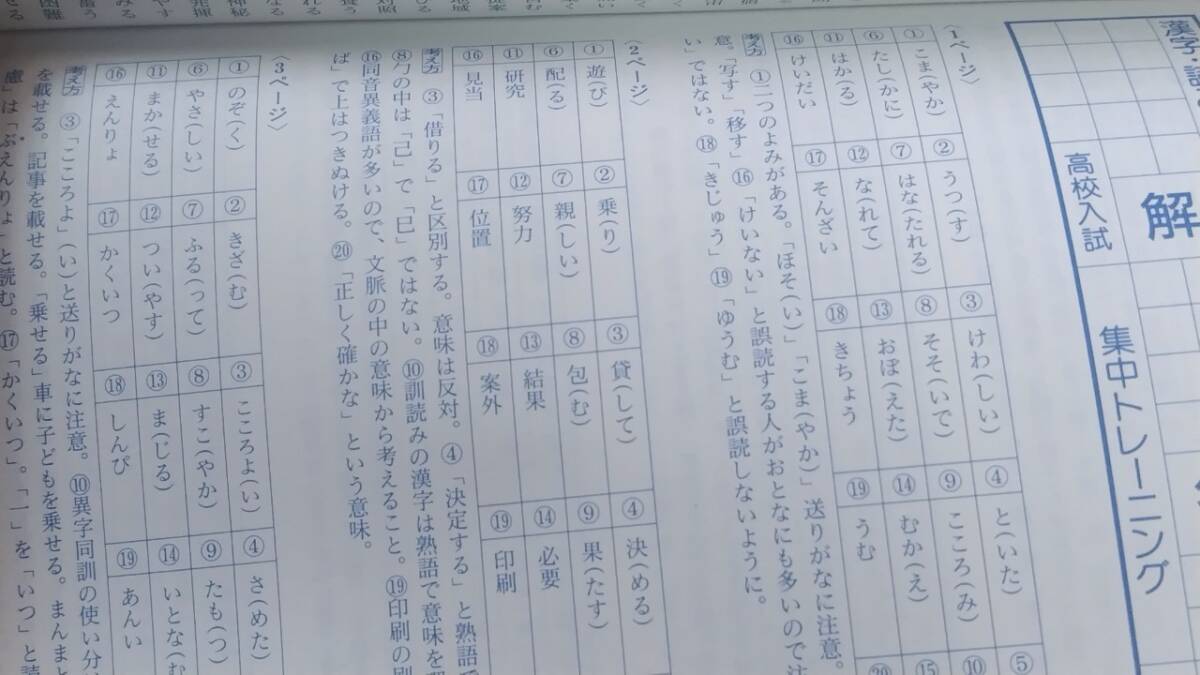 漢字・読
高校入試
解
集中トレーニング
〈1ページ〉
① こま(やか) ② うつ(す) ③ けわ(しい) ④ と(いた) ⑤
⑥ たし(かに) ⑦ はな(たれる) ⑧ そそ(いで) ⑨ こころ(み) ⑩
⑪ はか(る) ⑫ な(れて) ⑬ おぼ(えた) ⑭ むか(え) ⑮
⑯ けいだい ⑰ そんざい ⑱ きちょう ⑲ うむ ⑳
考え方 ①二つのよみがある。「ほそ(い)」「こま(やか)」送りがなに注意。
意。「写す」「移す」⑯「けいない」と誤読する人がおとなにも多いので注
い」ではない。⑱「きじゅう」⑲「ゆうむ」と誤読しないように。
〈2ページ〉
① 遊(び) ② 乗(り) ③ 貸(して) ④ 決(める)
⑥ 配(る) ⑦ 親(しい) ⑧ 包(む) ⑨ 果(たす)
⑪ 研究 ⑫ 努力 ⑬ 結果 ⑭ 必要
⑯ 見当 ⑰ 位置 ⑱ 案外 ⑲ 印刷
考え方 ③「借りる」と区別する。意味は反対。④「決定する」と熟語で
⑧勹の中は「己」で「巳」ではない。⑩訓読みの漢字は熟語で意味を
⑯同音異義語が多いので、文脈の中の意味から考えること。⑲印刷の刷
ば」で上はつきぬける。⑳「正しく確かな」という意味。
〈3ページ〉
① のぞ(く) ② きざ(む) ③ こころよ(い) ④ さ(めた)
⑥ やさ(しい) ⑦ ふる(って) ⑧ すこ(やか) ⑨ たも(つ)
⑪ まか(せる) ⑫ つい(やす) ⑬ ま(じる) ⑭ いとな(む
⑯ えんりょ ⑰ かくいつ ⑱ しんぴ ⑲ あんい
考え方 ③「こころよ」(い)と送りがなに注意。⑩異字同訓の使い分
を載せる。記事を載せる。「乗せる」車に子どもを乗せる。まんまと
慮」は「ぶえんりょ」と読む。⑰「かくいつ」。「一」を「いつ」と読